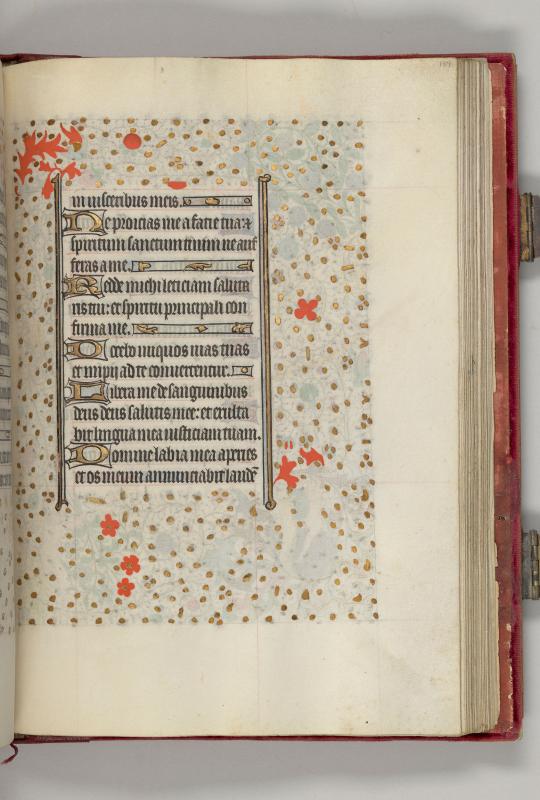 in uisceribus meis.
Ne proicias me a facie tua: et
spiritum sanctum tuum ne auf
feras a me.
Redde michi leticiam saluta
ris tui: et spiritu principali con
firma me.
Docebo iniquos uias tuas
et impij ad te conuertentur.
Libera me de sanguinibus
deus deus salutis mee: et exulta
bit lingua mea iusticiam tuam.
Domine labia mea aperies
et os meum annunciabit laudē